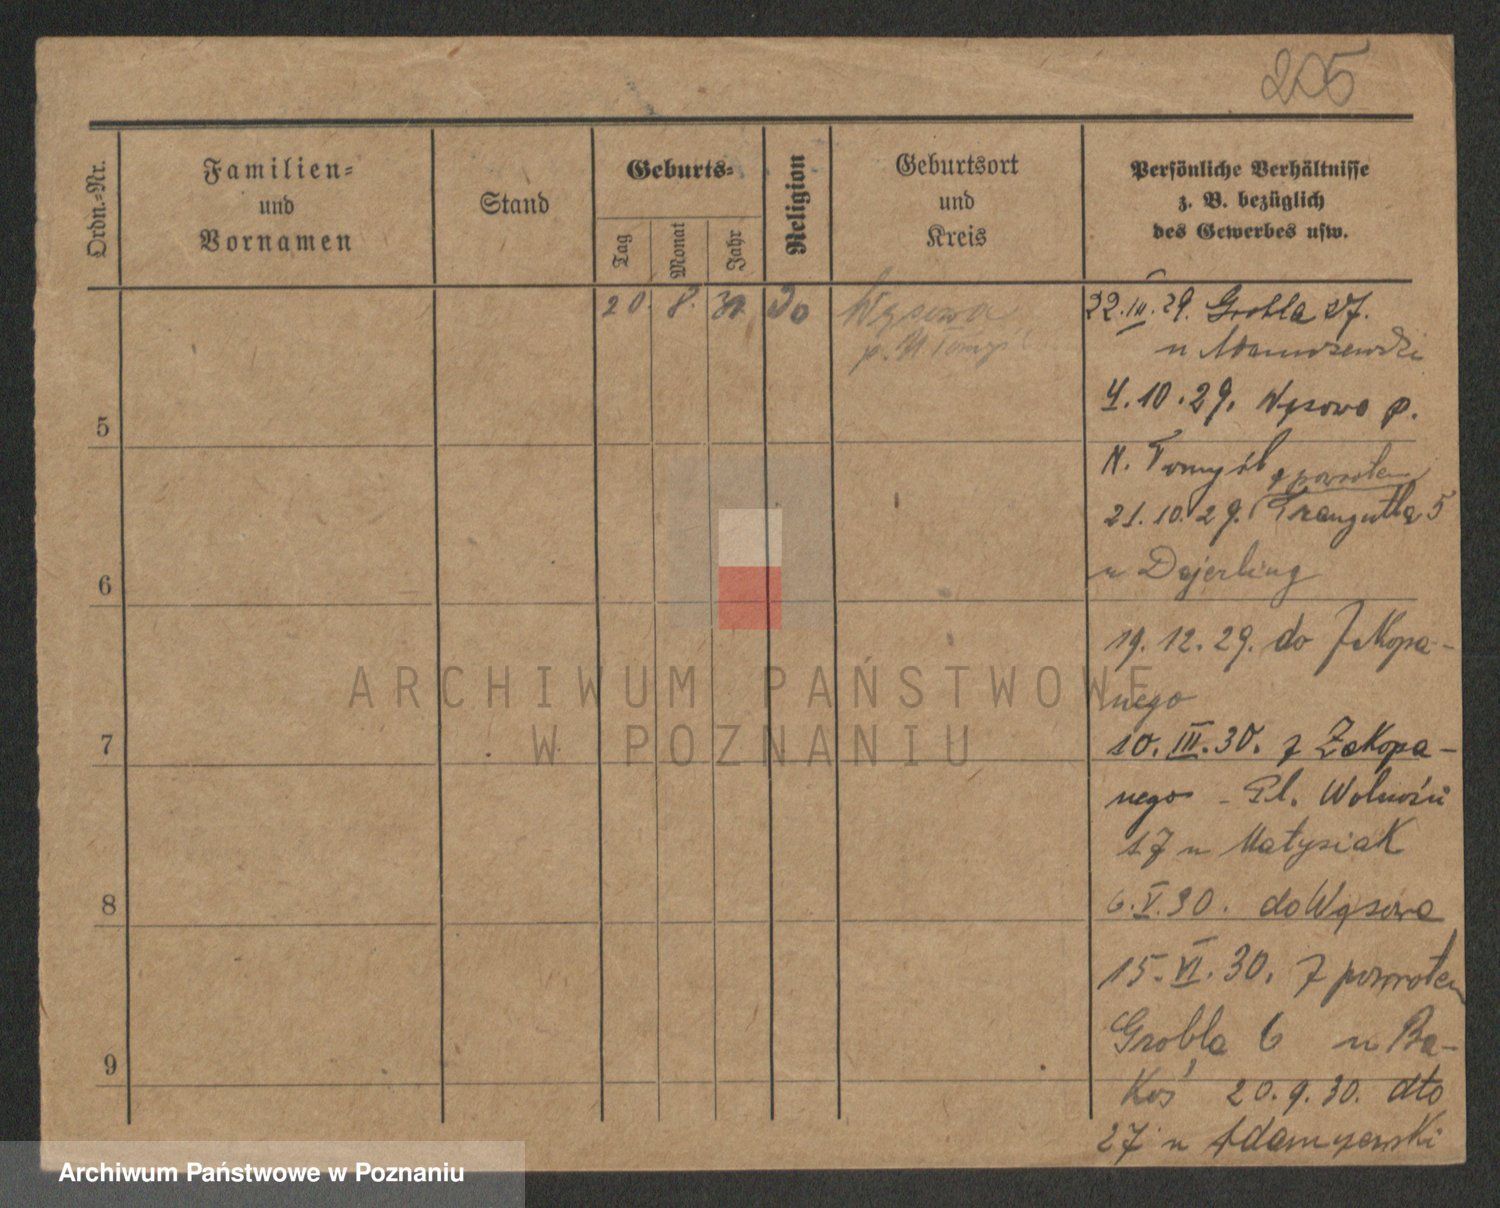 205
Ordn.-Nr.
Familien-
und
Vornamen
Stand
Geburts-
Tag
Monat
Jahr
Religion
Geburtsort
und
Kreis
Persönliche Verhältnisse
z. B. bezüglich
des Gewerbes usw.
20. 8.
Wąsowa
p. N Tomyśl
22.III.29. Grobla 27.
u Adamszewski
4.10.29. Wąsowo p.
N. Tomyśl z powrotem
21.10.29. Traugutta 5
u Dajerling
19.12.29. do Zakopa-
nego
10.III.30. z Zakopa-
nego - Pl. Wolności
17 u Matysiak
6.V.30. do Wąsowa
15.VI.30. z powrotem
Grobla 6 u Ba-
Koś 20.9.30. dto
27 u Adamszewski
5
6
7
8
9
ARCHIWUM PAŃSTWOWE
W POZNANIU
Archiwum Państwowe w Poznaniu